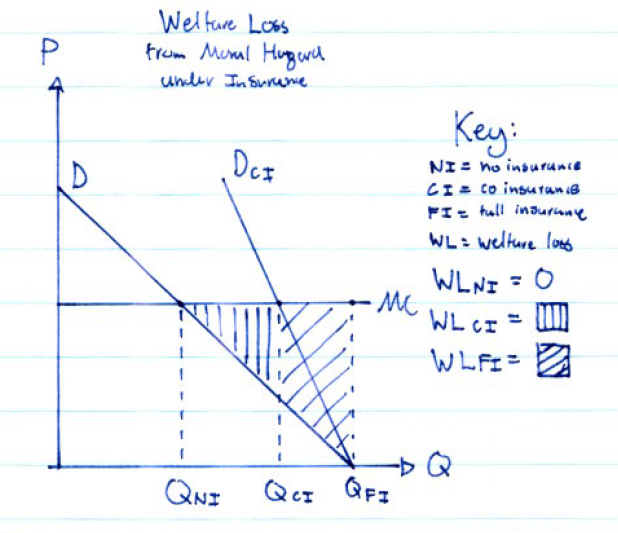 Welfare Loss
from Moral Hazard
under Insurance
P
D
DCI
MC
QNI
QCI
QFI
Q
Key:
NI = no insurance
CI = co insurance
FI = full insurance
WL = welfare loss
WLNI = 0
WLCI =
WLFI =